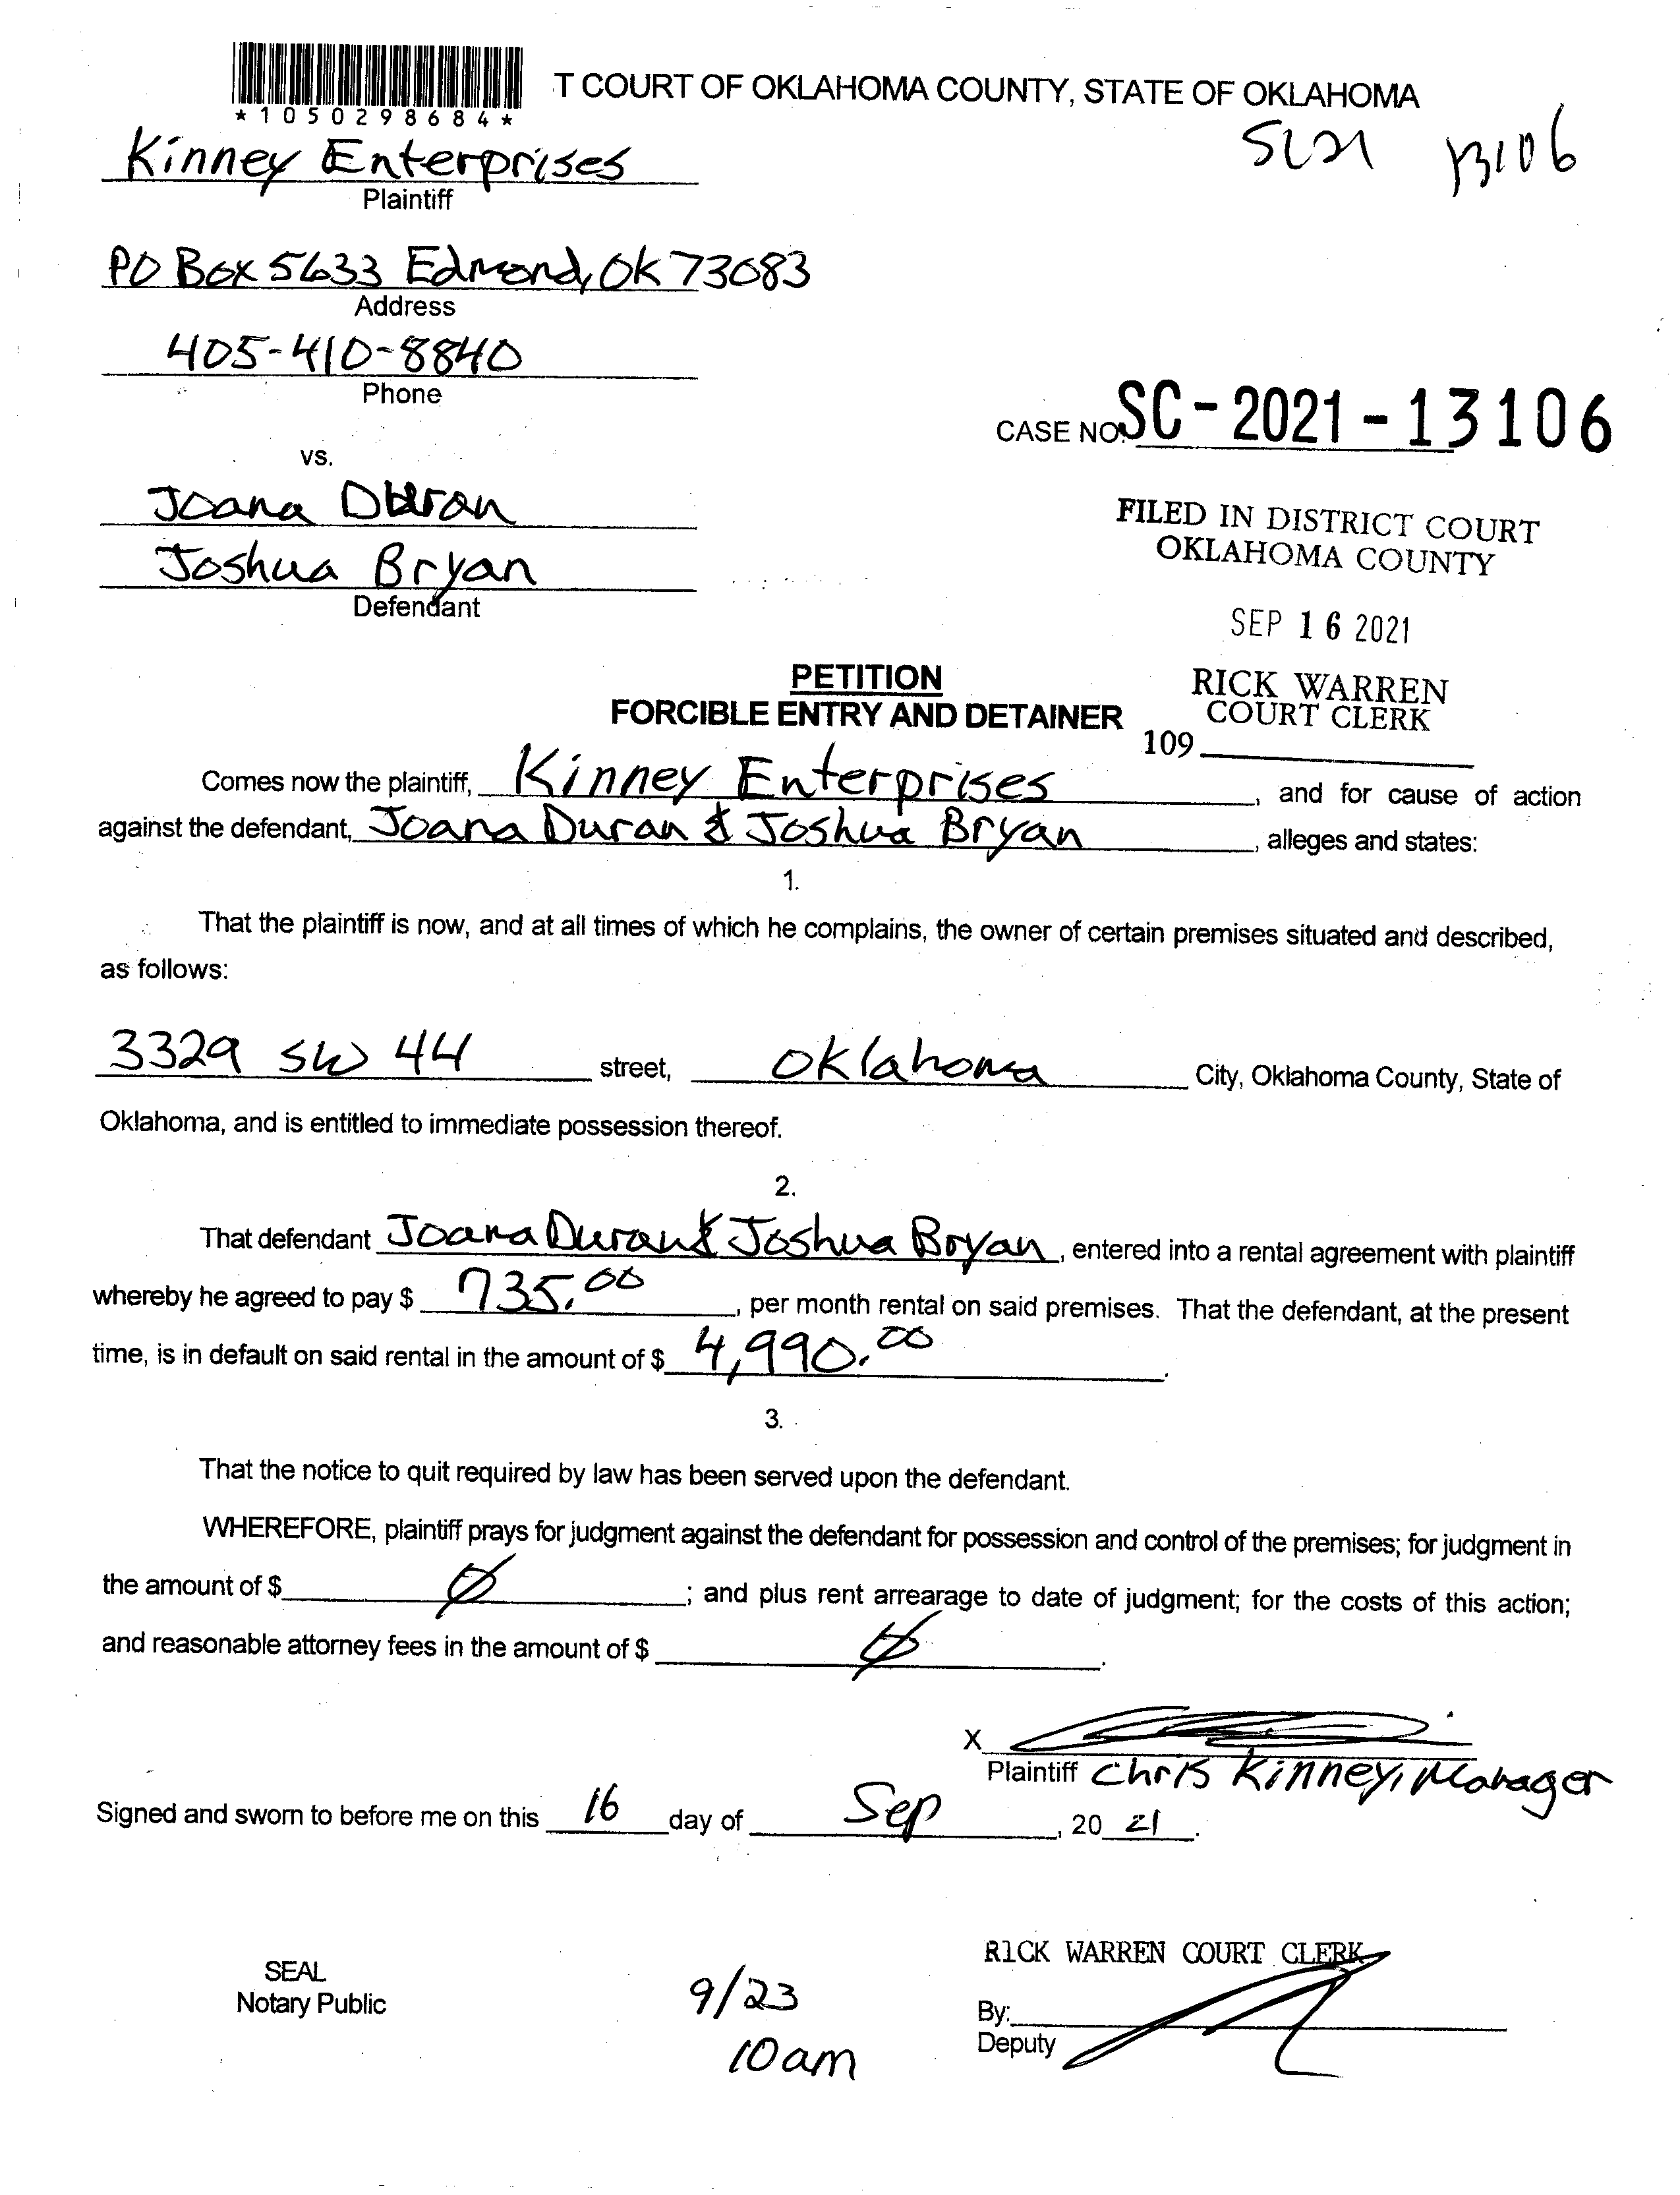 T COURT OF OKLAHOMA COUNTY, STATE OF OKLAHOMA
*1050298684*
13106
Kinney Enterprises
Plaintiff
PO Box 5633 Edmond, OK 73083
Address
405-410-8840
Phone
CASE NO. SC-2021-13106
vs.
Joana Duran
Joshua Bryan
Defendant
FILED IN DISTRICT COURT
OKLAHOMA COUNTY
SEP 16 2021
RICK WARREN
COURT CLERK
109
PETITION
FORCIBLE ENTRY AND DETAINER
Comes now the plaintiff, Kinney Enterprises, and for cause of action
against the defendant, Joana Duran & Joshua Bryan, alleges and states:
1.
That the plaintiff is now, and at all times of which he complains, the owner of certain premises situated and described,
as follows:
3329 SW 44 street, Oklahoma City, Oklahoma County, State of
Oklahoma, and is entitled to immediate possession thereof.
2.
That defendant Joana Duran & Joshua Bryan, entered into a rental agreement with plaintiff
whereby he agreed to pay $ 735.00, per month rental on said premises. That the defendant, at the present
time, is in default on said rental in the amount of $ 4,990.00.
3.
That the notice to quit required by law has been served upon the defendant.
WHEREFORE, plaintiff prays for judgment against the defendant for possession and control of the premises; for judgment in
the amount of $ Ø; and plus rent arrearage to date of judgment; for the costs of this action;
and reasonable attorney fees in the amount of $ Ø.
X
Plaintiff Chris Kinney, Manager
Signed and sworn to before me on this 16 day of Sep, 20 21.
RICK WARREN COURT CLERK
SEAL
Notary Public
9/23
10am
By:
Deputy